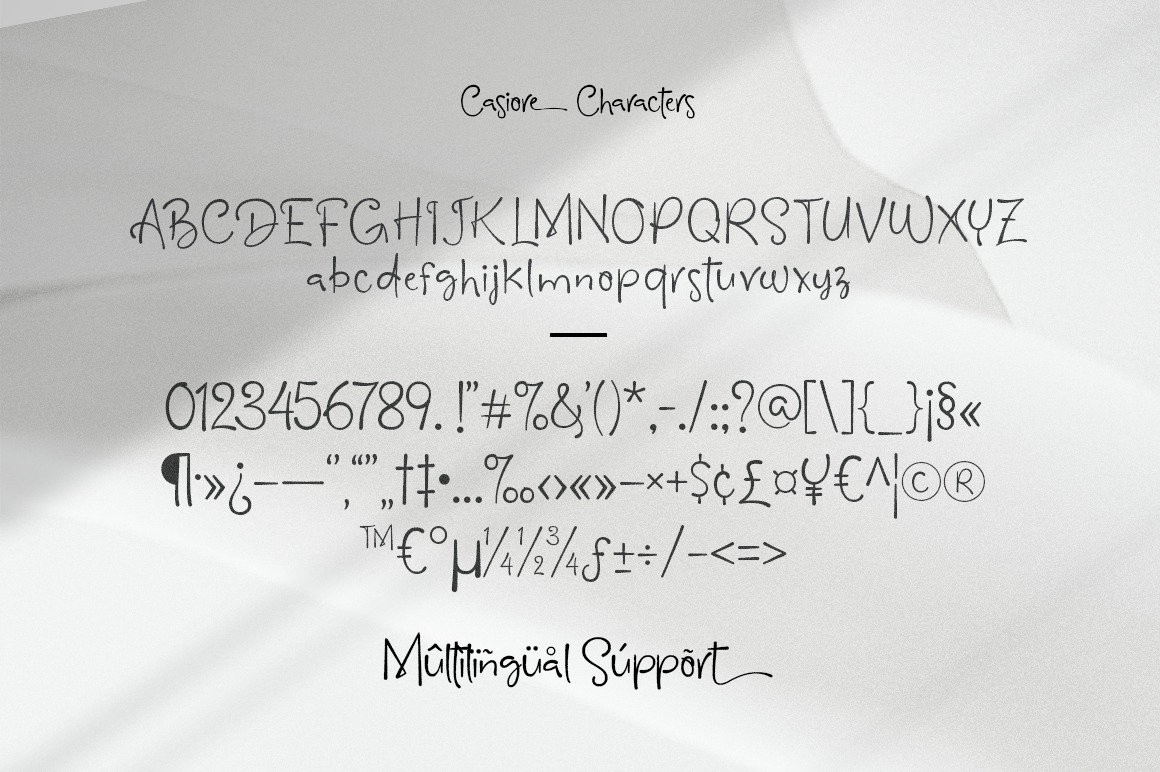 Casiore Characters
ABCDEFGHIJKLMNOPQRSTUVWXYZ
abcdefghijklmnopqrstuvwxyz
0123456789.!"#%&'()*,-./:;?@[\]{_}¡§«
¶·»¿–—‘’‚“”„†‡•…‰‹›«»−×+$¢£¤¥€^¦©®
™€°µ¼½¾ƒ±÷⁄-<=>
Mûltîlïñgüål Súppõrt